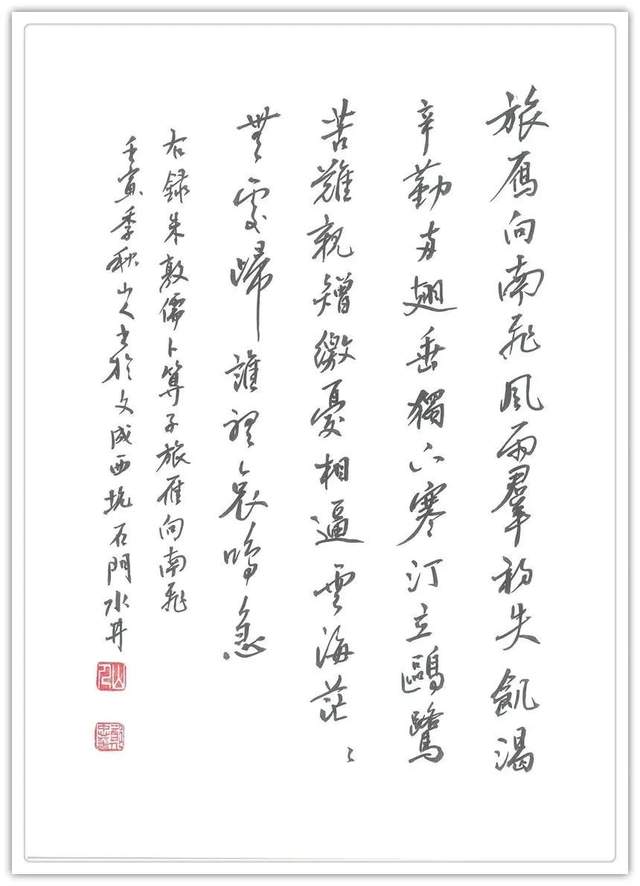 旅鴈向南飛風雨羣初失飢渴
辛勤兩翅垂獨下寒汀立鷗鷺
苦難親矰繳憂相逼雲海茫〻
無處歸誰聽哀鳴急
右錄朱敦儒卜算子旅雁向南飛
壬寅季秋山人書於文成西坑石門水井
山人